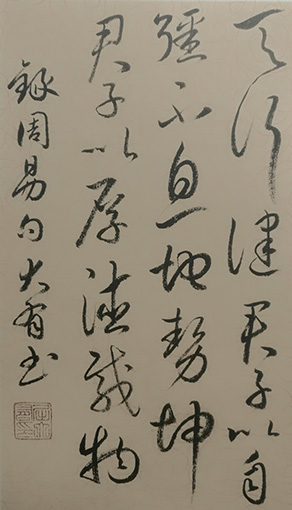 天行健君子以自
强不息地势坤
君子以厚德载物
录周易句大有书